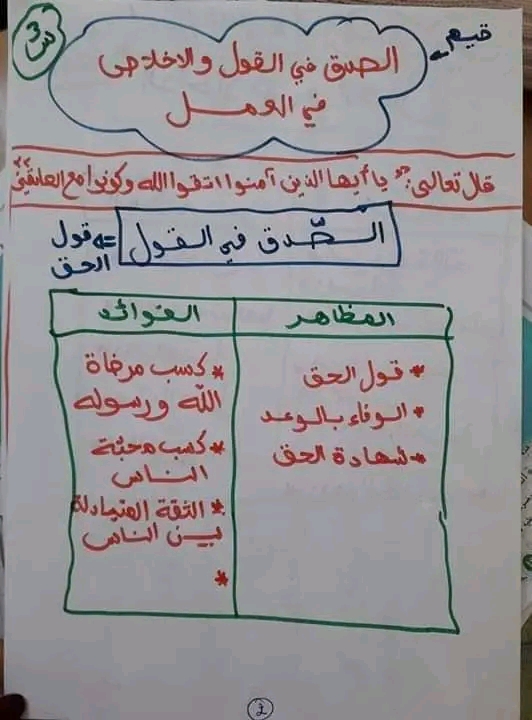 س3
قيم
الصدق في القول والاخلاص
في العمل
قال تعالى: "يا أيها الذين آمنوا اتقوا الله وكونوا مع الصادقين"
الصّدق في القول = قول
الحق
المظاهر
* قول الحق
* الوفاء بالوعد
* شهادة الحق
الفوائد
* كسب مرضاة
الله ورسوله
* كسب محبّة
الناس
* الثقة المتبادلة
بين الناس
*